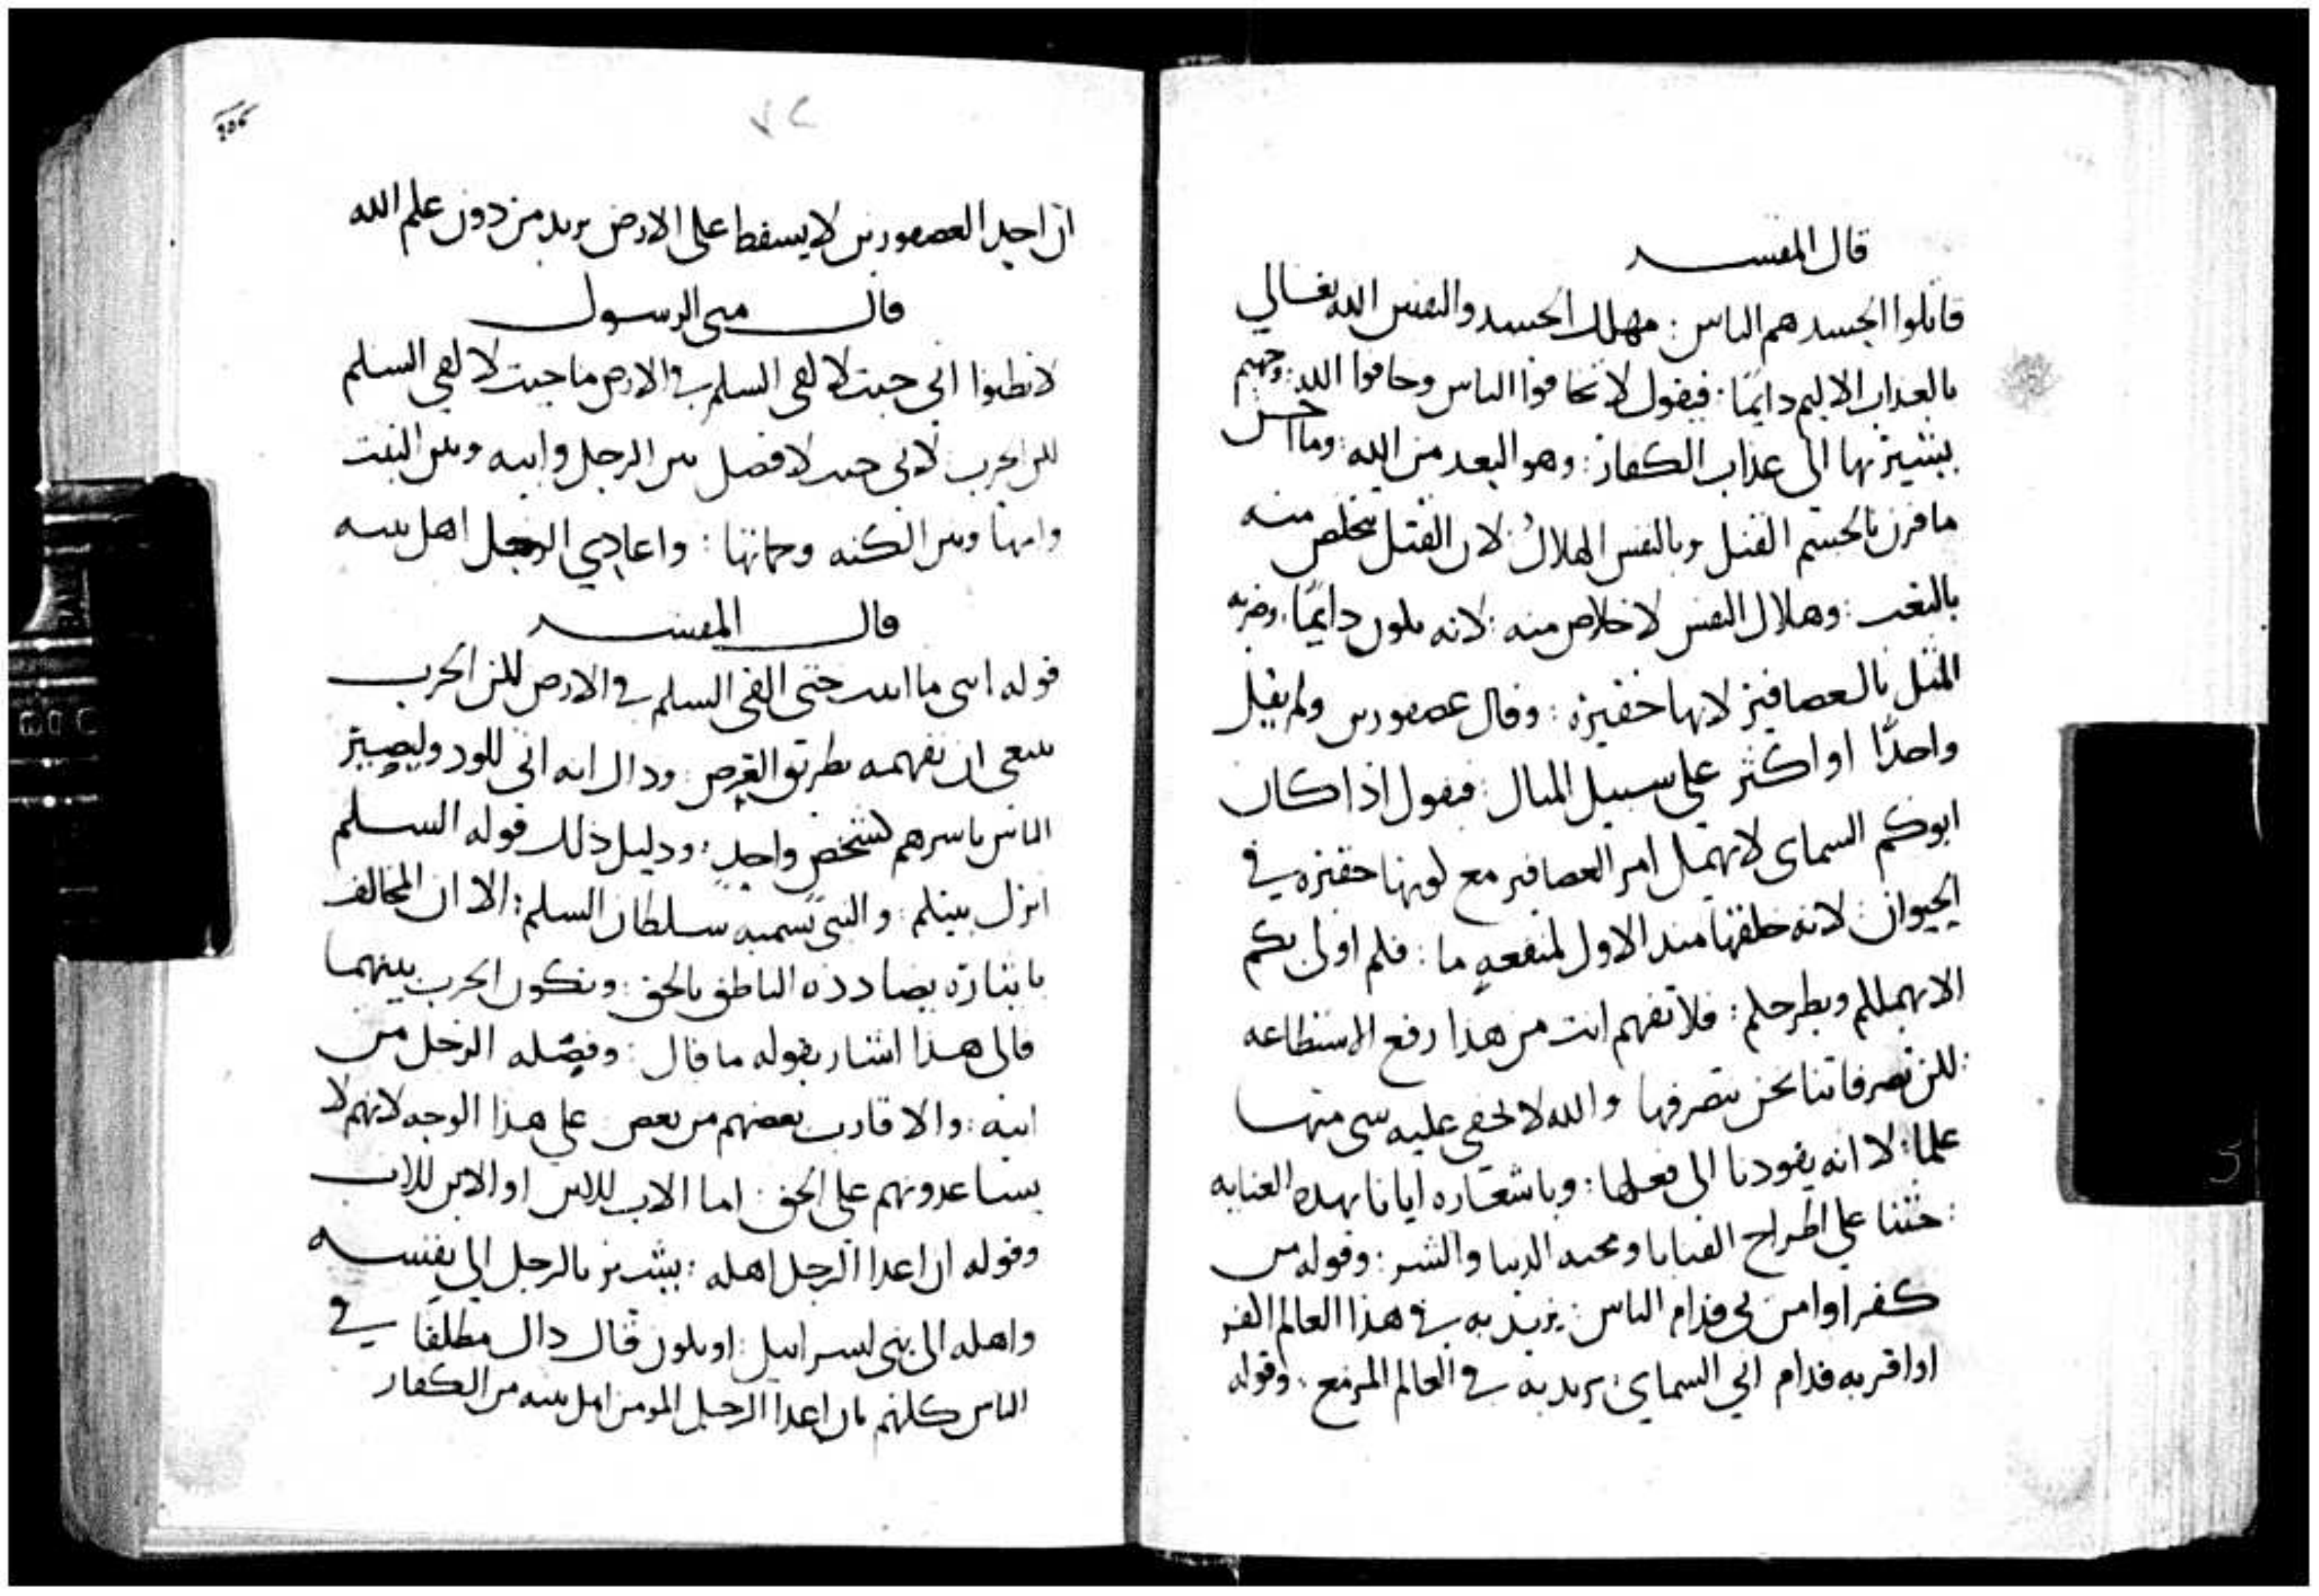 قال المفسر
قاتلوا الجسد هم الناس : مهلك الجسد والنفس الله تعالي
بالعذاب الاليم دايمًا : فيقول لا تخافوا الناس وخافوا الله : وجهنم
يشير بها الى عذاب الكفار : وهو البعد من الله : وما احسن
ما قرن بالجسم القتل وبالنفس الهلاك : لان القتل يتخلص منه
بالبعث : وهلاك النفس لا خلاص منه : لانه يكون دايمًا : وضربه
المثل بالعصافير لانها حقيره : وقال عصفورين ولم يقل
واحدًا او اكثر على سبيل المثال : فيقول اذا كان
ابوكم السماى لا يهمل امر العصافير مع كونها حقيره في
الحيوان : لانه خلقها منذ الاول لمنفعهٍ ما : فكم اولى بكم
الا يهملكم ويطرحكم : فلا تفهم انت من هذا رفع الاستطاعه
: لكن تصرفاتنا نحن نتصرفها والله لا يخفى عليه شى منها
علما : لا انه يقودنا الى فعلها : وباشعاره ايانا بهذه العنايه
: حثنا على اطراح القنايا ومحبه الدنيا والشر : وقوله من
كفر او امن بى قدام الناس : يريد به في هذا العالم
او اقر به قدام ابي السماى : يريد به في العالم المزمع : وقوله
206
ان احد العصفورين لا يسقط على الارض يريد من دون علم الله
قال متى الرسول
لا تظنوا انى جيت لالقى السلم في الارض ما جيت لالقى السلم
لكن الحرب : لانى جيت لافصل بين الرجل وابنه وبين البنت
وامها وبين الكنه وحماتها : واعادي الرجل اهل بيته
قال المفسر
قوله انى ما اتيت حتى القى السلم في الارض لكن الحرب
ينبغى ان تفهمه بطريق العرض : وذاك انه اتى للود وليصير
الناس باسرهم كشخص واحدٍ : ودليل ذلك قوله السلم
اترك بينكم : والنبى تسميه سلطان السلم : الا ان المخالف
بايثاره يضادده الناطق بالحق : وتكون الحرب بينهما
فالى هذا اشار بقوله ما قال : وفصله الرجل من
ابنه : والاقارب بعضهم من بعض على هذا الوجه لانهم لا
يساعدونهم على الحق : اما الاب للابن او الابن للاب
وقوله ان اعدا الرجل اهله : يشير بالرجل الى نفسه
واهله الى بنى اسراييل : او يكون قال ذاك مطلقًا في
الناس كلهم بان اعدا الرجل المومن اهل بيته من الكفار